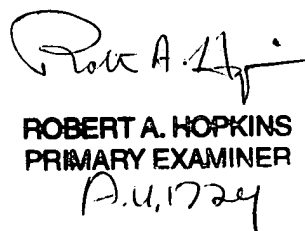 Robt A. Hopkins
ROBERT A. HOPKINS
PRIMARY EXAMINER
A.U. 1724